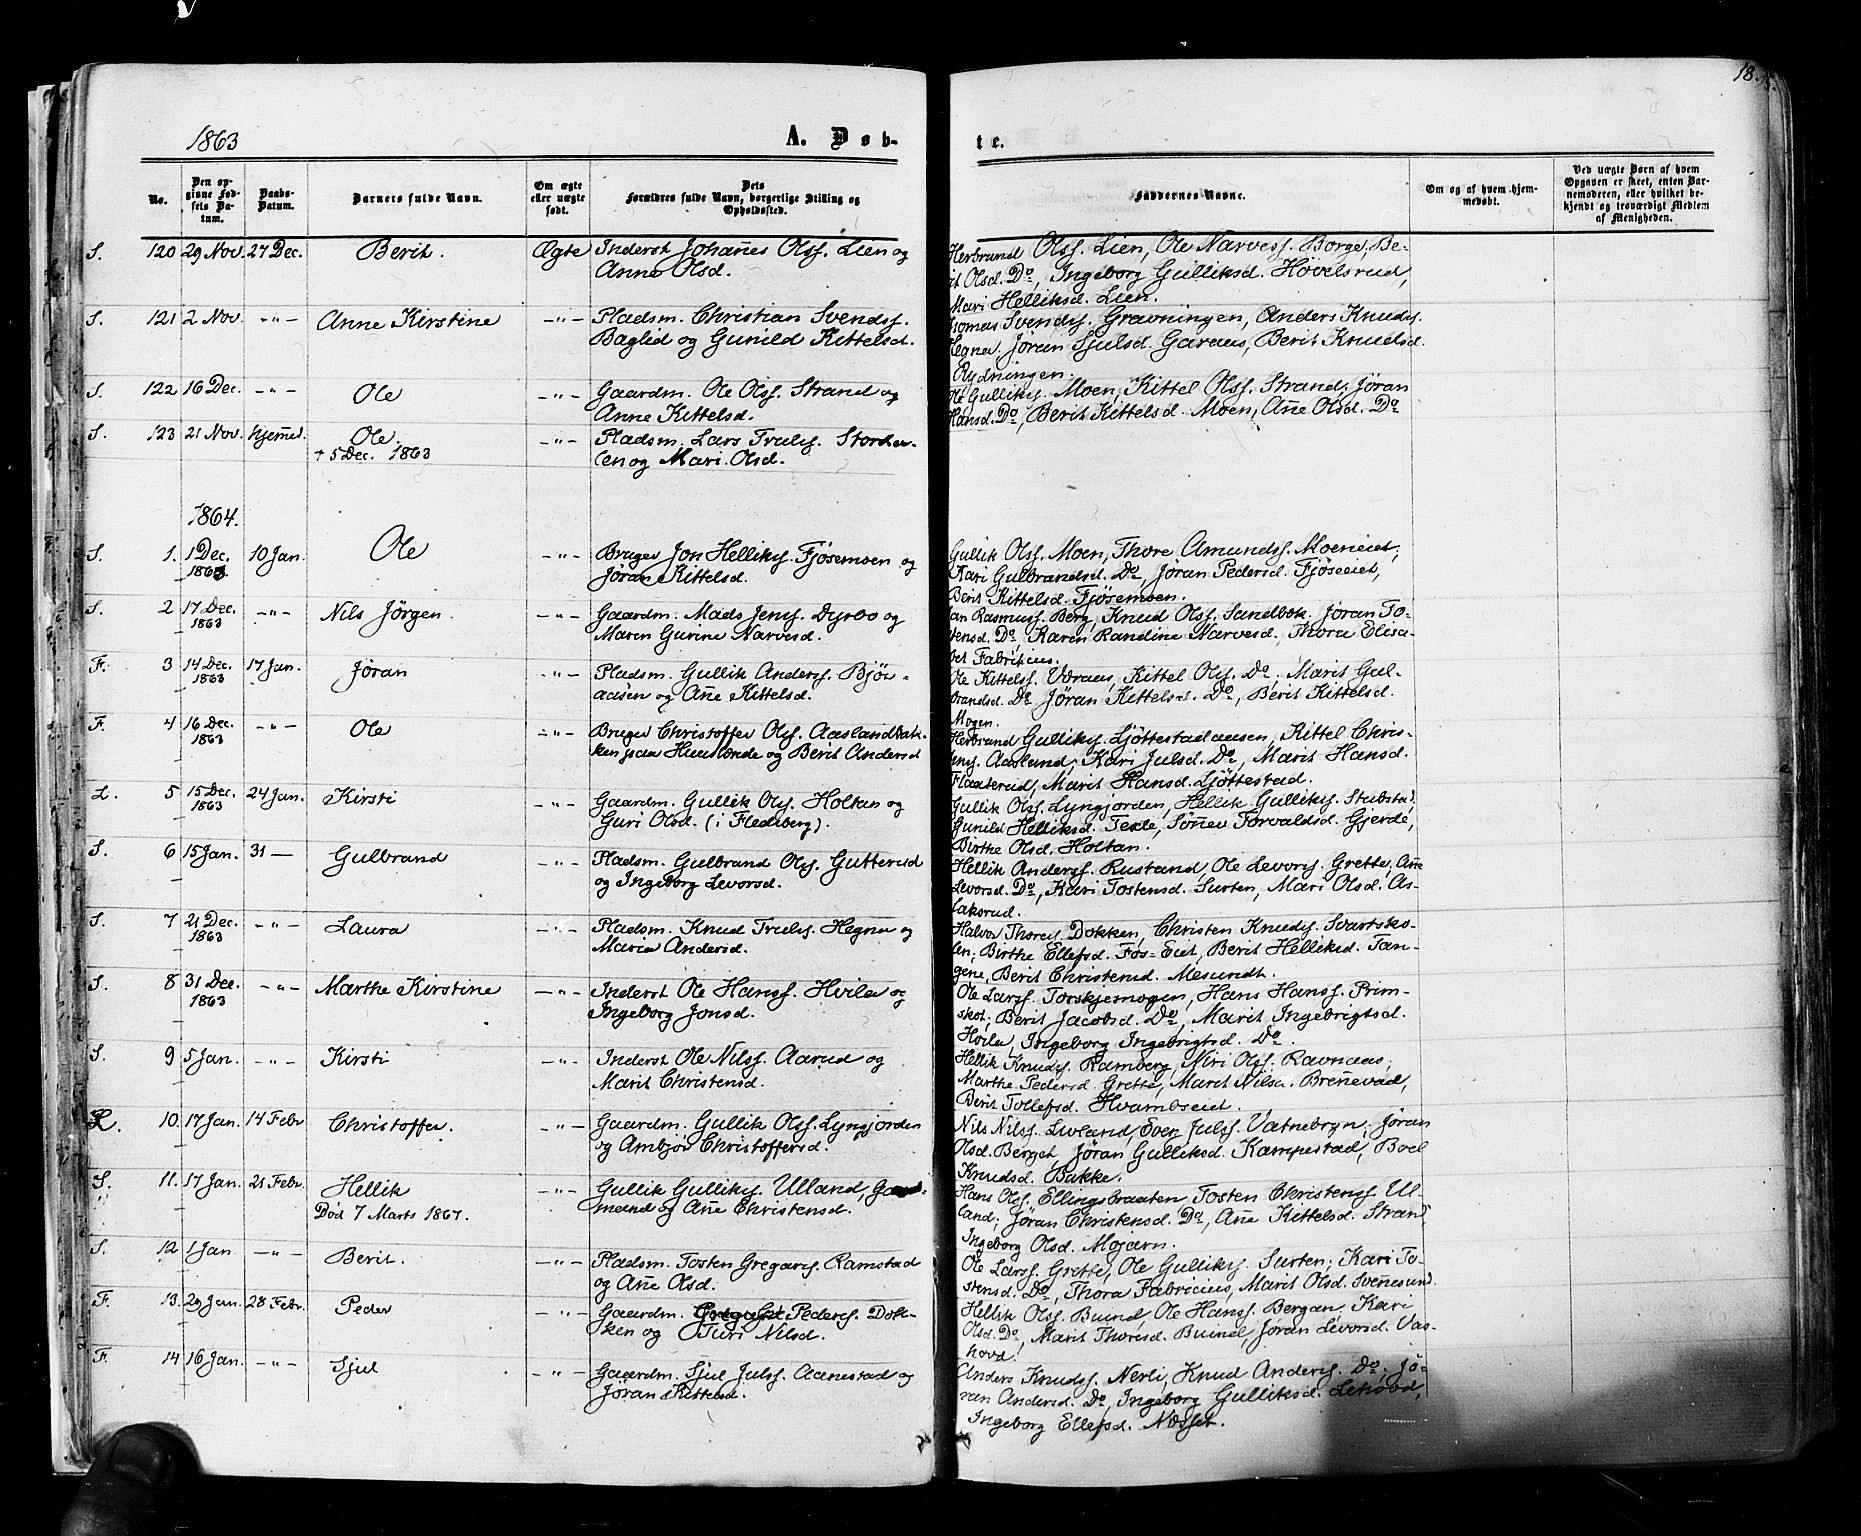 18
1863
A. Døb-
te.
No.
Den op-
givne Fød-
sels Da-
tum.
Daabs-
Datum.
Barnets fulde Navn.
Om ægte
eller uægte
født.
Dets
Forældres fulde Navn, borgerlige Stilling og
Opholdssted.
Faddernes Navne.
Om og af hvem hjem-
medøbt.
Ved uægte Børn af hvem
Opgaven er skeet, enten Bar-
nemoderen, eller hvilket be-
kjendt og troværdigt Medlem
af Menigheden.
S. 120 29 Nov. 27 Dec. Berit. Ægte Inderst Johañes Olss. Lien og
Anne Olsd.
Herbrand Olss. Lien, Ole Narvess. Borge, Be-
rit Olsd. Do, Ingeborg Gulliksd. Hövelsrud,
Mari Helliksd. Lien.
S. 121 2 Nov. -"- Anne Kirstine -"- Pladsm. Christian Svendss.
Baglid og Gunild Kittelsd.
Thomas Svendss. Gravningen, Anders Knuds.
Hegna. Jöran Sjulsd. Garaas, Berit Knudsd.
Rydningen.
S. 122 16 Dec. -"- Ole -"- Gaardm. Ole Olss. Strand og
Anne Kittelsd.
Ole Gulliks. Moen, Kittel Olss. Strand, Jöran
Hansd. Do, Berit Kittelsd. Moen, Añe Olsd. Do
S. 123 21 Nov. hjem̃ed. Ole. -"- Pladsm. Lars Truls. Stordal-
+ 5 Dec. 1863
en og Mari Olsd.
1864.
S. 1. 1 Dec. 10 Jan. Ole -"- Bruger Jon Helliks. Fjösemoen og
1863.
Jöran Kittelsd.
Gullik Olss. Moen, Thore Amundss. Moeneiet,
Kari Gulbrandsd. Do, Jöran Pedersd. Fjöseeiet,
Berit Kittelsd. Fjösemoen.
S. 2 17 Dec. -"- Nils Jörgen. -"- Gaardm. Mads Jenss. Dyrbo og
1863
Maren Gurine Narvesd.
Jan Rasmuss. Berg, Knud Olss. Sandbæk. Jöran To-
stensd. Do, Karen Randine Narvesd, Thora Elisa-
bet Fabricius.
F. 3 14 Dec. 17 Jan. Jöran -"- Pladsm. Gullik Anderss. Björ-
1863
aasen og Añe Kittelsd.
Ole Kittelss. Væraas, Kittel Olss. Do, Marit Gul-
brandsd. Do, Jöran Kittelsd. Do, Berit Kittelsd.
Mogen.
F. 4 16 Dec. -"- Ole -"- Bruger Christoffer Olss. Aaslandbak-
1863
ken paa Huusmoende og Berit Andersd
Herbrand Gulliks. Ljöttestadaasen, Kittel Chris-
tens. Aasland, Kari Julsd. Do, Marit Hansd.
Flaaterud, Marit Hansd. Ljöttestad.
L. 5 15 Dec. 24 Jan. Kirsti -"- Gaardm. Gullik Olss. Holtan og
1863
Guri Olsd. (i Flesberg).
Gullik Olss. Lyngjorden, Hellik Gulliks. Stubstad,
Gunild Helliksd. Texle, Söñev Torvaldsd. Gjerde,
Birthe Olsd. Holtan.
S. 6 15 Jan. 31 — Gulbrand -"- Pladsm. Gulbrand Olss. Gutterud
og Ingeborg Levorsd.
Hellik Anderss. Rustand, Ole Levors. Grette, Añe
Levorsd. Do, Kari Tostensd. Surten, Mari Olsd. As-
laksrud.
S. 7 21 Dec. -"- Laura -"- Pladsm. Knud Truls. Hegna og
1863
Maria Andersd.
Halvor Thores. Dokken, Christen Knuds. Svartsko-
len, Birthe Ellefsd. Fös-Eiet, Berit Helliksd. Tan-
gene, Berit Christensd. Mesundt.
S. 8 31 Dec. -"- Marthe Kirstine -"- Inderst Ole Hanss. Hvila og
1863
Ingeborg Jonsd.
Ole Larss. Torskjemogen, Hans Hanss. Prim-
skot, Berit Jacobsd. Do, Marit Ingebrigtsd.
Hvila, Ingeborg Ingebrigtsd. Do.
S. 9 5 Jan. -"- Kirsti -"- Inderst Ole Nilss. Aarud og
Marit Christensd.
Hellik Knuds. Ramberg, Niri Olss. Ravnaas,
Marthe Pedersd. Grette, Marit Nilsd. Breñevad,
Berit Tollefsd. Hvambseiet.
L. 10. 17 Jan. 14 Febr Christoffer. -"- Gaardm. Gullik Olss. Lyngjorden
og Ambjör Christoffersd.
Nils Nilss. Livland, Even Julss. Vatnebryn, Jöran
Olsd. Berget, Jöran Gulliksd. Kampestad, Boel
Knudsd. Bakke.
S. 11. 17 Jan. 21 Febr. Hellik -"- Gullik Gulliks. Ulland, Gaard-
Död 7 Marts 1864.
mand og Añe Christensd.
Hans Olss. Ellingsbraaten Tosten Christenss. Ul-
land, Jöran Christensd. Do, Añe Kittelsd. Strand
Ingeborg Olsd. Mojarn.
S. 12 1 Jan. -"- Berit. -"- Pladsm. Tosten Gregars. Ramstad
og Añe Olsd.
Ole Larss. Grette, Ole Gulliks. Surten, Kari To-
stensd. Do, Thora Fabricius, Marit Olsd. Sveñesund.
F. 13. 29 Jan. 28 Febr. Peder -"- Gaardm. Pederss. Dok-
ken og Turi Nilsd.
Hellik Olss. Buind, Ole Hanss. Bergan, Kari
Olsd. Do, Marit Thoresd. Buind, Jöran Levorsd. Vas-
hovd.
F. 14 16 Jan. -"- Sjul -"- Gaardm. Sjul Julss. Aanestad og
Jöran Kittelsd.
Anders Knudss. Nerli, Knud Anderss. Do, Jö-
ran Andersd. Do, Ingeborg Gulliksd. Lehovd,
Ingeborg Ellefsd. Næsset.